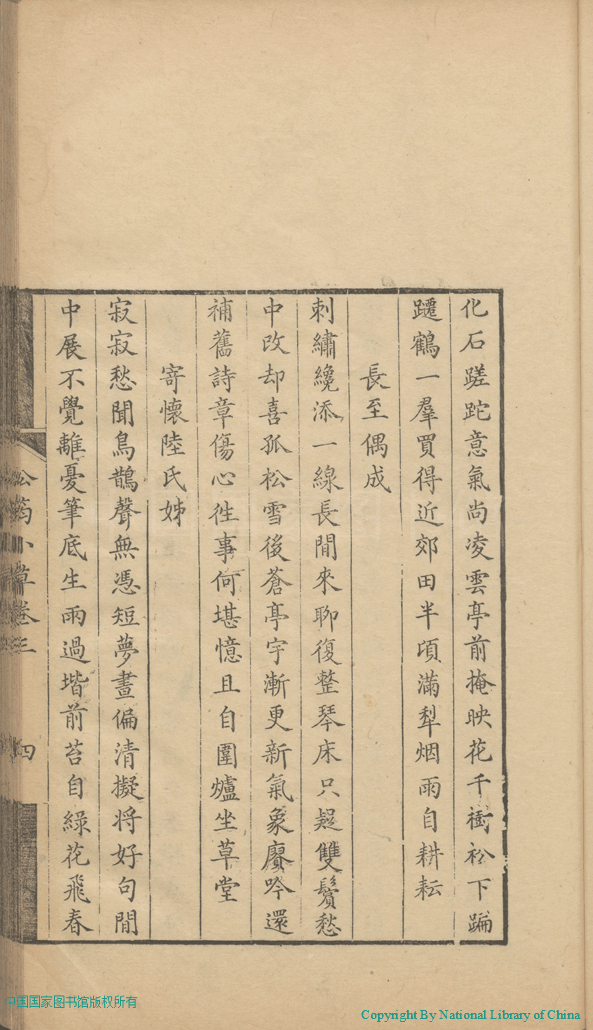 化石蹉跎意氣尚凌雲亭前掩映花千樹松下蹁
躚鶴一羣買得近郊田半頃滿犁烟雨自耕耘
長至偶成
刺繡纔添一線長閒來聊復整琴床只疑雙鬢愁
中改却喜孤松雪後蒼亭宇漸更新氣象賡吟還
補舊詩章傷心徃事何堪憶且自圍爐坐草堂
寄懷陸氏姊
寂寂愁聞鳥鵲聲無憑短夢晝偏清擬將好句閒
中展不覺離憂筆底生雨過堦前苔自綠花飛春
小草卷三
四
中国国家图书馆版权所有
Copyright By National Library of China